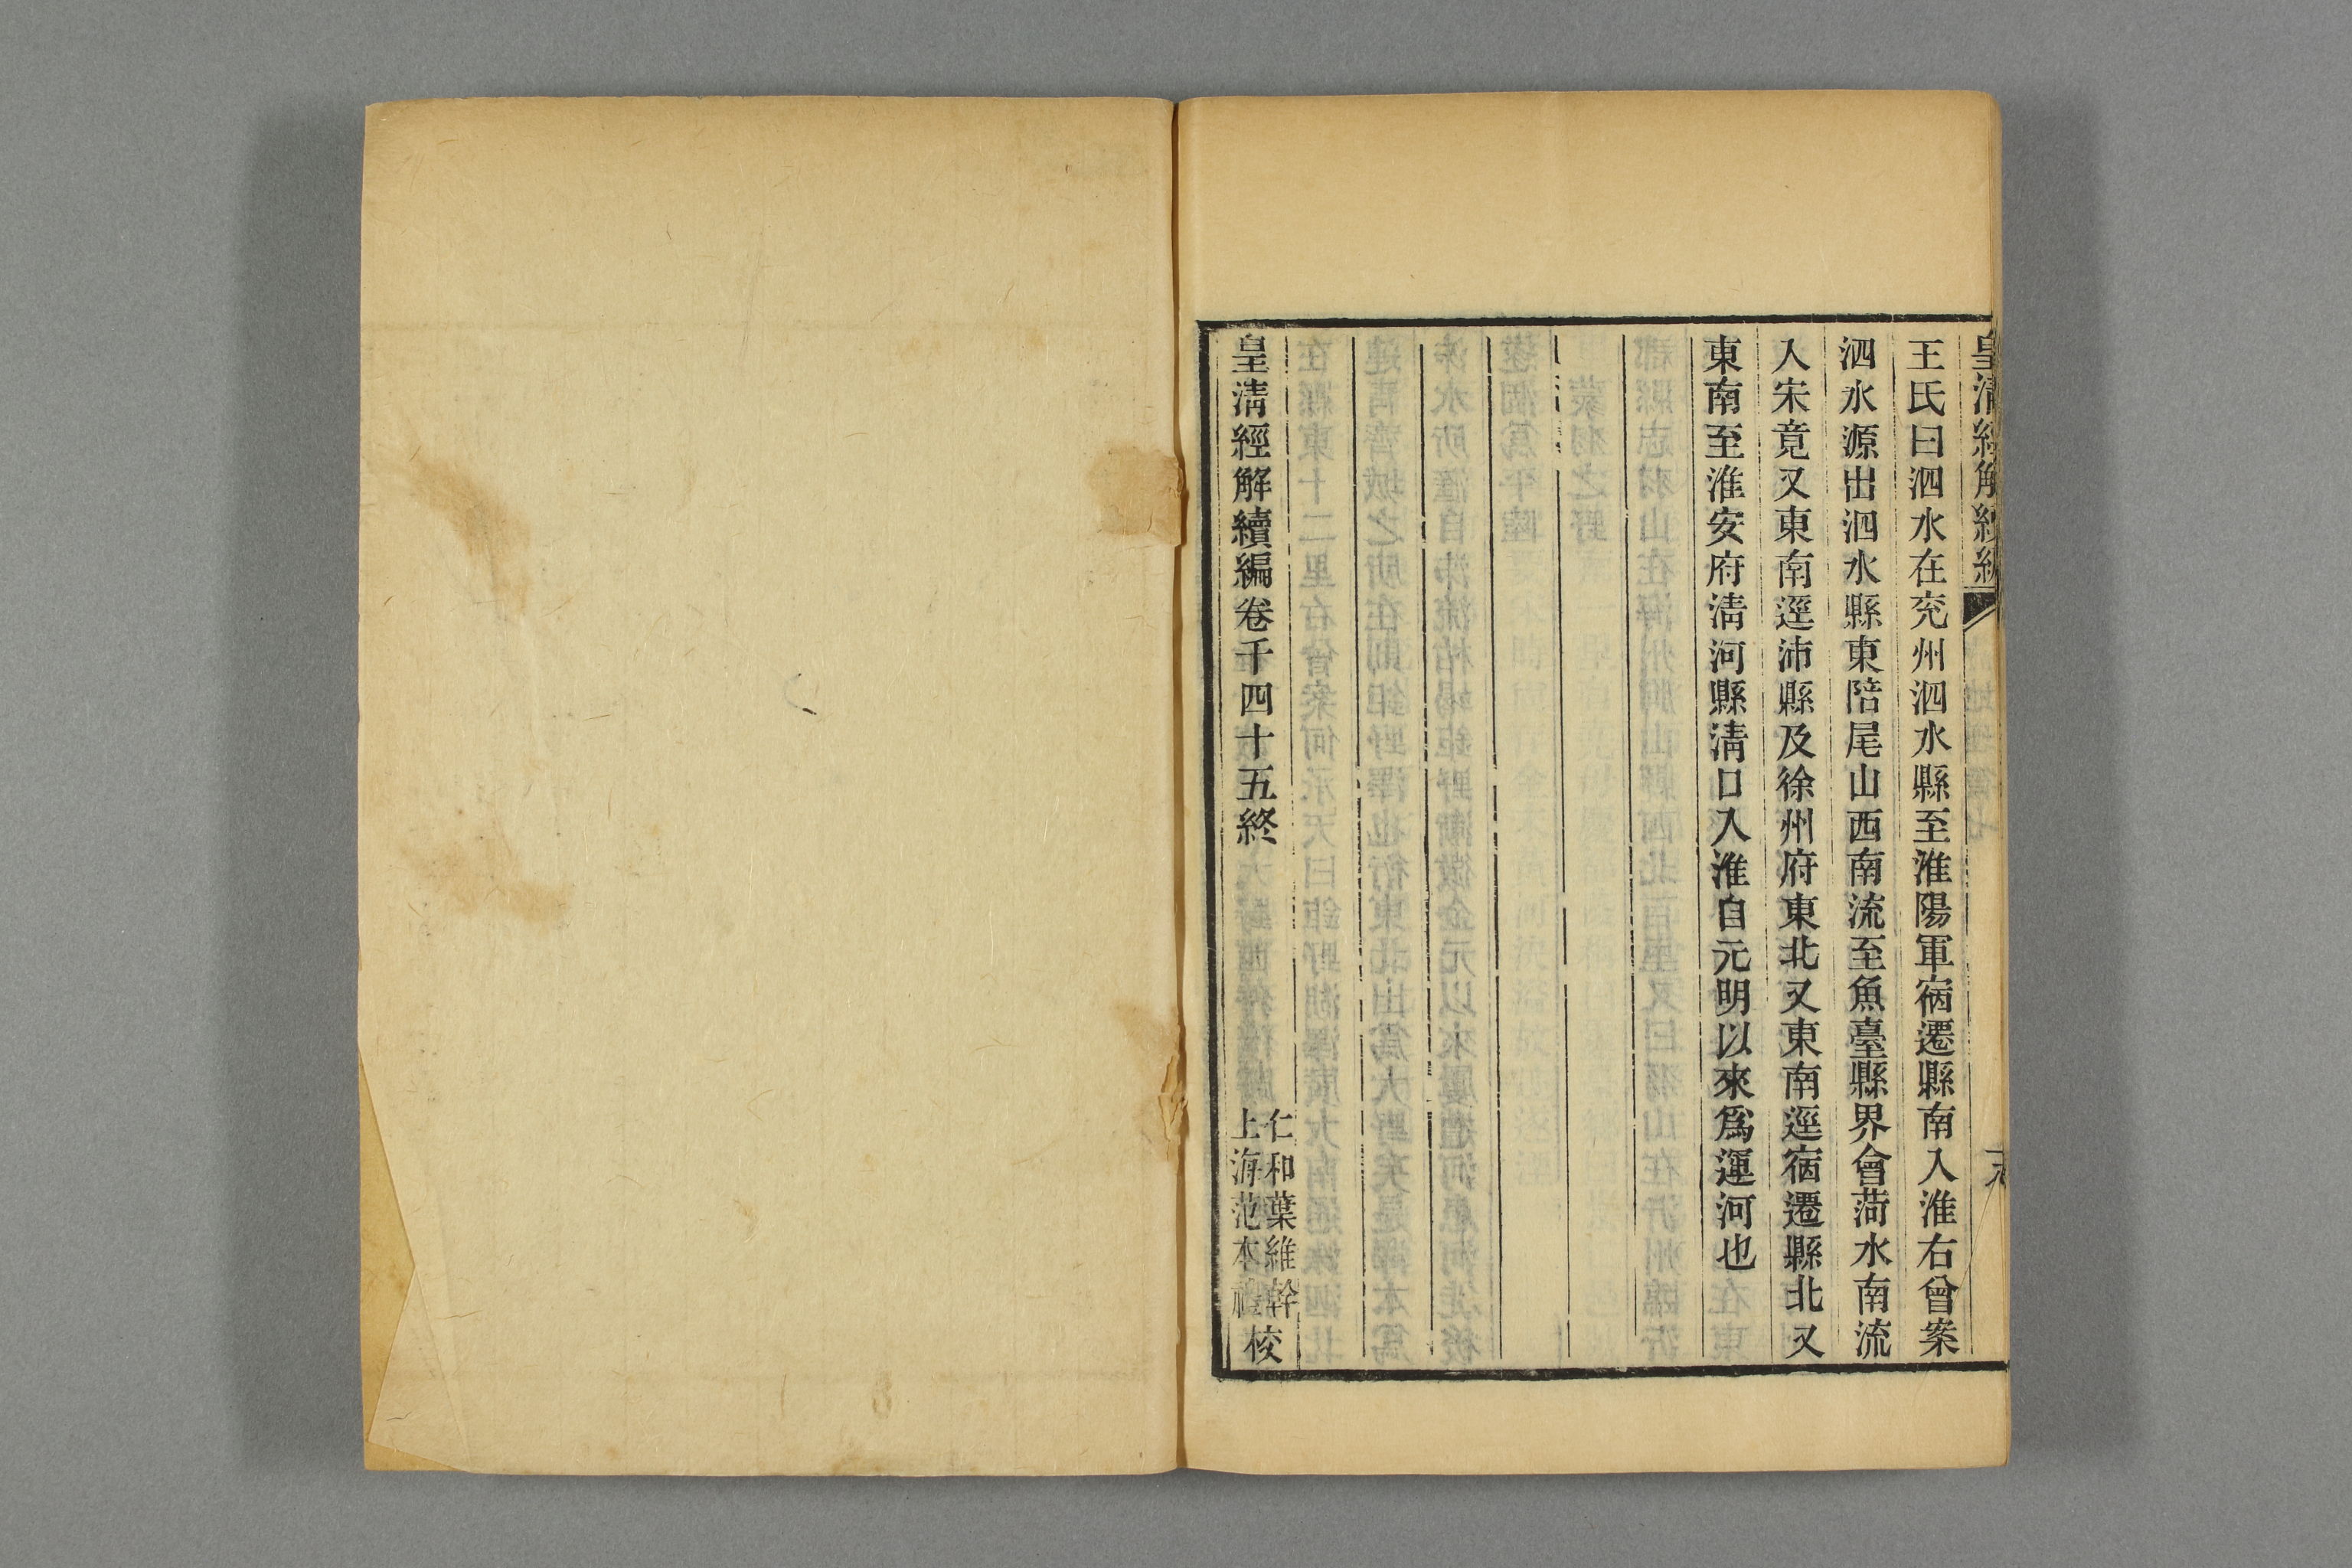 皇清經解續編
王氏曰泗水在兖州泗水縣至淮陽軍宿遷縣南入淮右曾案
泗水源出泗水縣東陪尾山西南流至魚臺縣界會菏水南流
入宋竟又東南逕沛縣及徐州府東北又東南逕宿遷縣北又
東南至淮安府清河縣清口入淮自元明以來爲運河也
皇清經解續編卷千四十五終
仁和葉維幹
上海范本禮
校